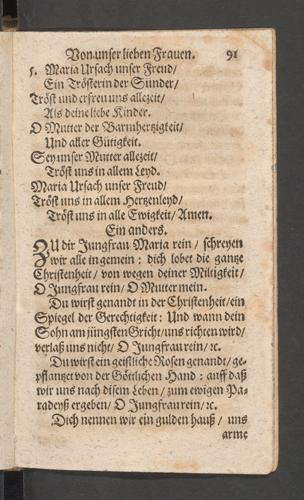 Von unser lieben Frauen. 91
5. Maria Ursach unser Freud/
Ein Trösterin der Sünder/
Tröst und erfreu uns allezeit/
Als deine liebe Kinder.
O Mutter der Barmhertzigkeit/
Und aller Gütigkeit.
Sey unser Mutter allezeit/
Tröst uns in allem Leyd.
Maria Ursach unser Freud/
Tröst uns in allem Hertzenleyd/
Tröst uns in alle Ewigkeit/ Amen.
Ein anders.
ZU dir Jungfrau Maria rein / schreyen
wir alle in gemein: dich lobet die gantze
Christenheit / von wegen deiner Miligkeit/
O Jungfrau rein / O Mutter mein.
Du wirst genandt in der Christenheit/ein
Spiegel der Gerechtigkeit: Und wann dein
Sohn am jüngsten Gricht/uns richten wird/
verlaß uns nicht/ O Jungfrau rein/ ꝛc.
Du wirst ein geistliche Rosen genandt/ ge-
pflantzet von der Göttlichen Hand: auff daß
wir uns nach disem Leben / zum ewigen Pa-
radeyß ergeben/ O Jungfrau rein/ ꝛc.
Dich nennen wir ein gulden hauß / uns
arme